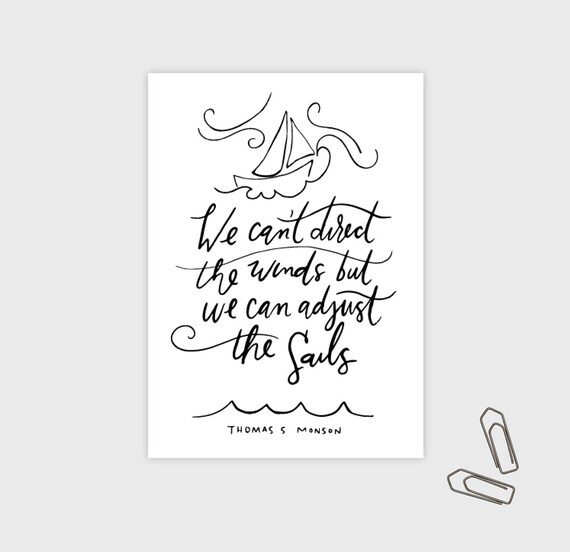 We can't direct
the winds but
we can adjust
the Sails
THOMAS S MONSON